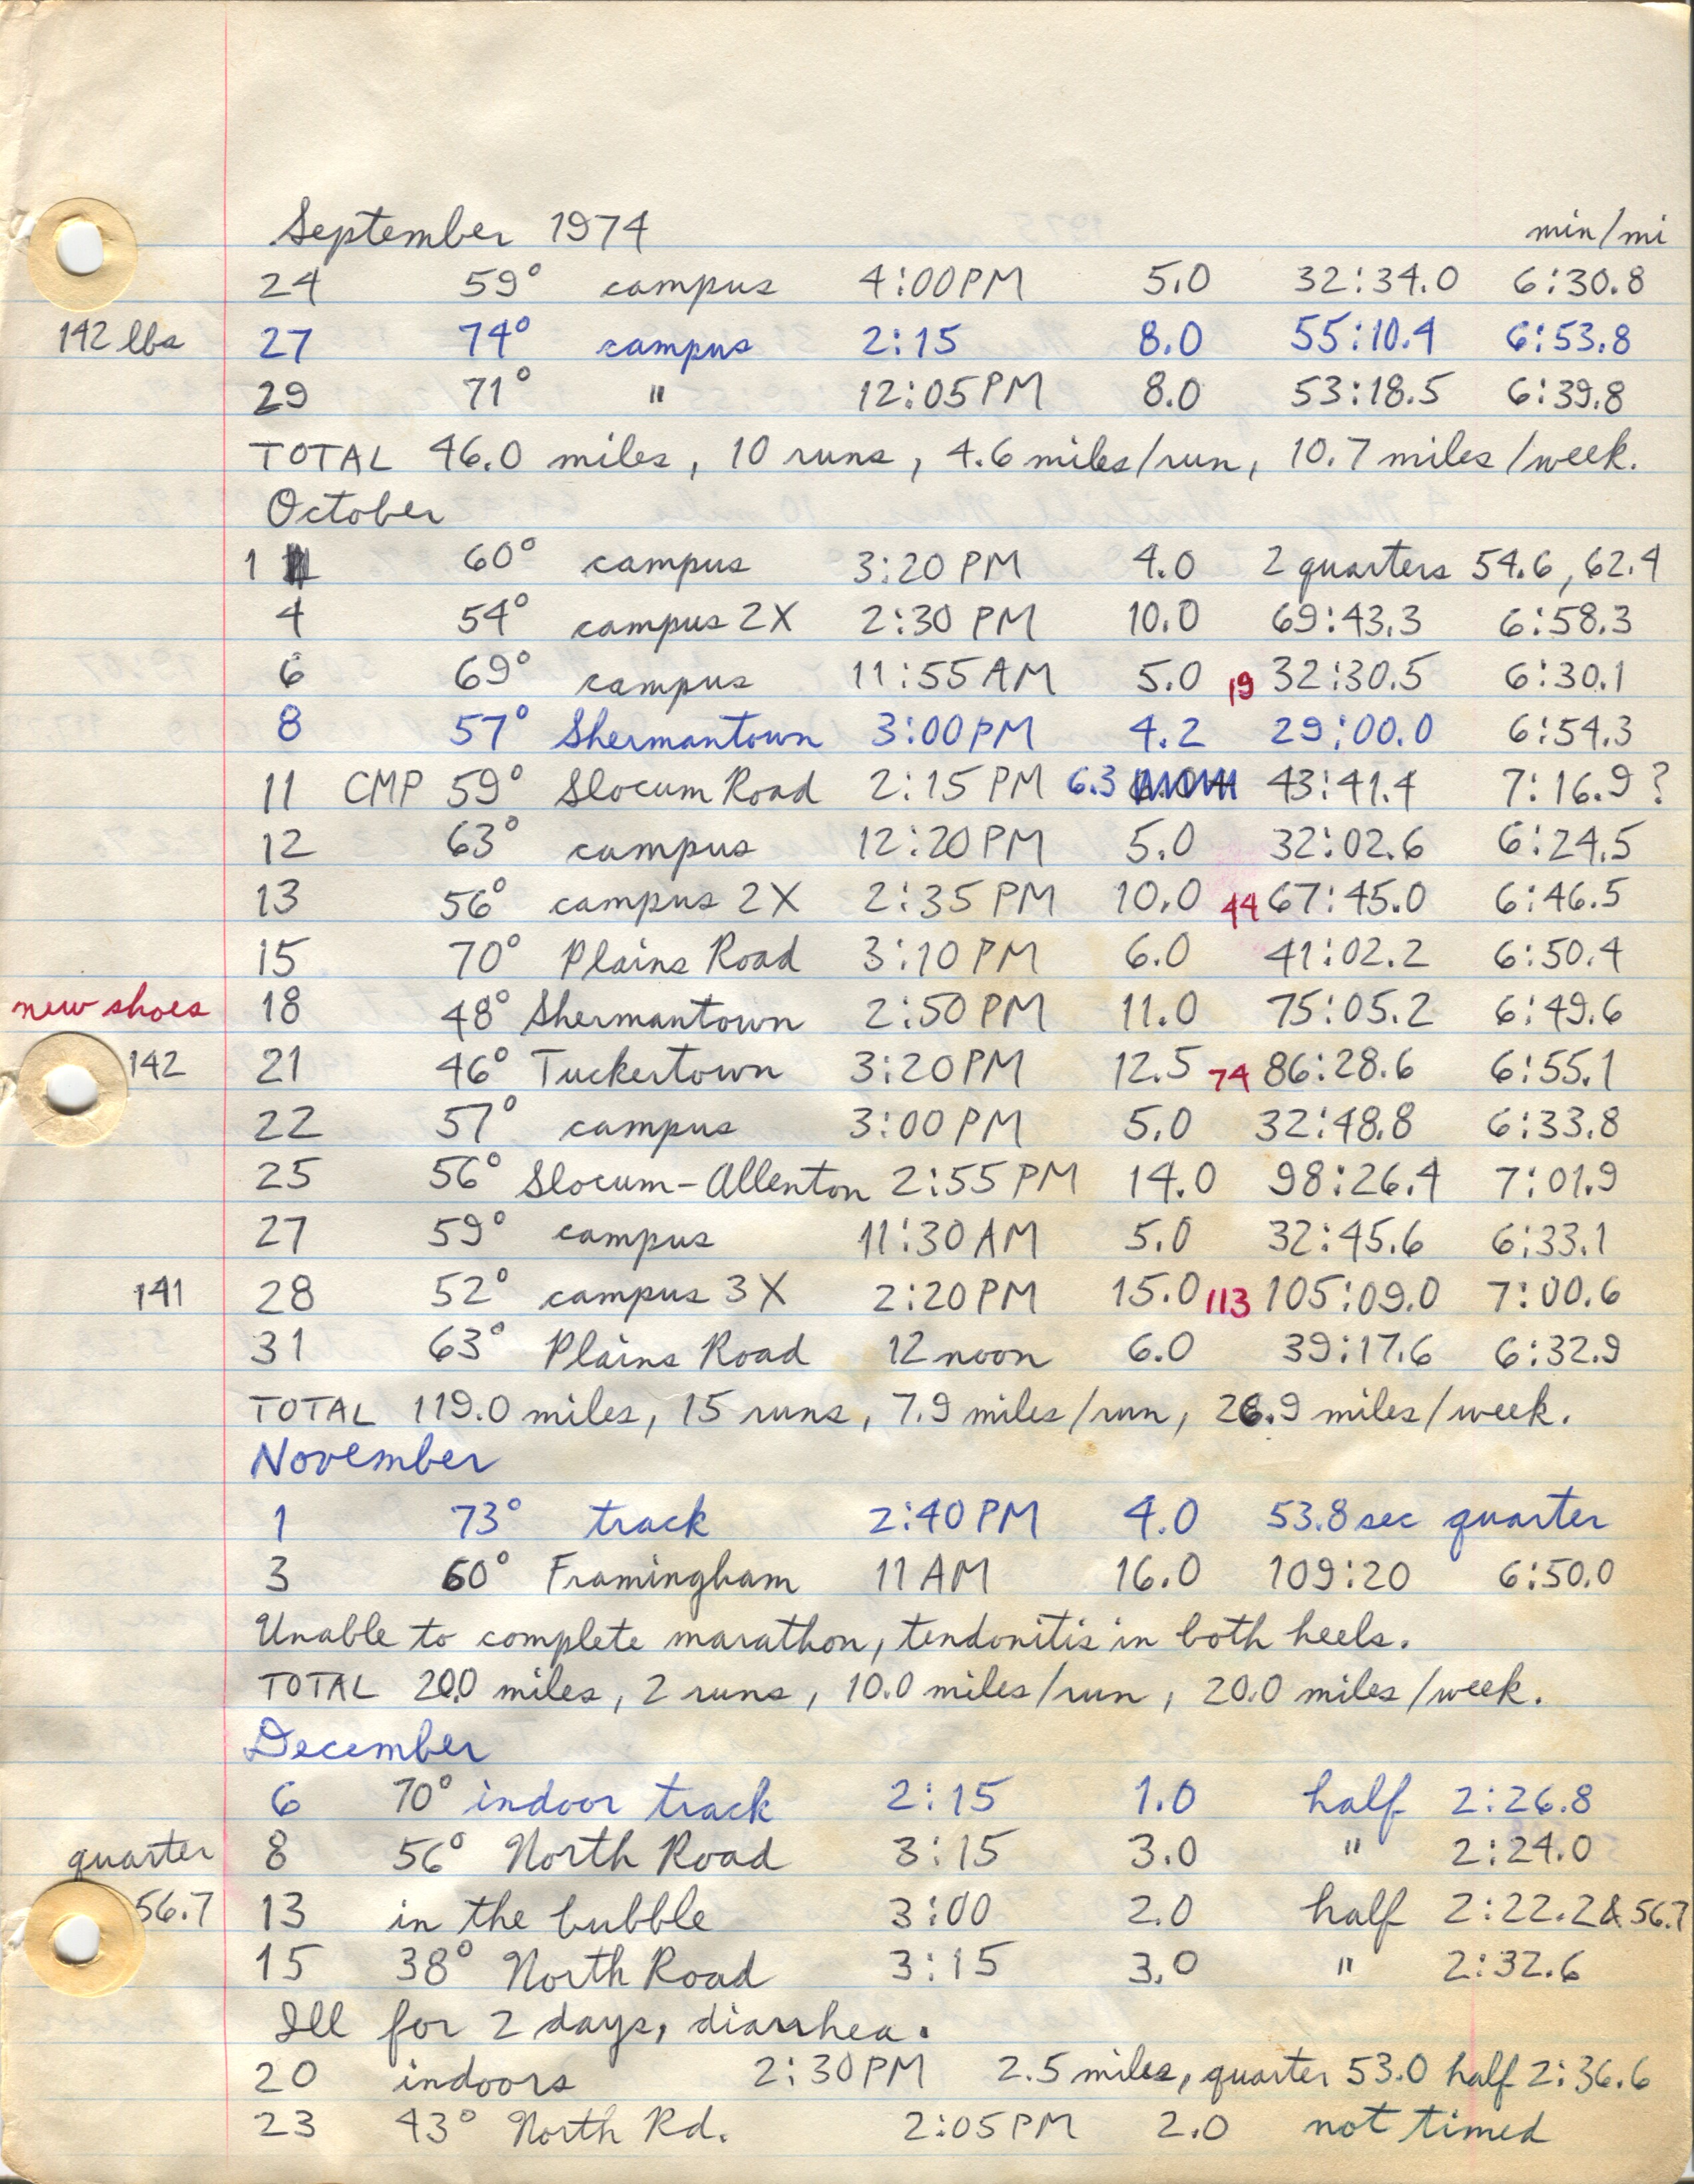 September 1974 min/mi
24 59° campus 4:00PM 5.0 32:34.0 6:30.8
142 lbs 27 74° campus 2:15 8.0 55:10.4 6:53.8
29 71° " 12:05PM 8.0 53:18.5 6:39.8
TOTAL 46.0 miles, 10 runs, 4.6 miles/run, 10.7 miles/week.
October
1 60° campus 3:20 PM 4.0 2 quarters 54.6, 62.4
4 54° campus 2X 2:30 PM 10.0 69:43.3 6:58.3
6 69° campus 11:55 AM 5.0 19 32:30.5 6:30.1
8 57° Shermantown 3:00PM 4.2 29:00.0 6:54.3
11 CMP 59° Slocum Road 2:15 PM 6.3 43:41.4 7:16.9?
12 63° campus 12:20 PM 5.0 32:02.6 6:24.5
13 56° campus 2X 2:35 PM 10.0 44 67:45.0 6:46.5
15 70° Plains Road 3:10 PM 6.0 41:02.2 6:50.4
new shoes 18 48° Shermantown 2:50 PM 11.0 75:05.2 6:49.6
142 21 46° Tuckertown 3:20PM 12.5 74 86:28.6 6:55.1
22 57° campus 3:00 PM 5.0 32:48.8 6:33.8
25 56° Slocum-Allenton 2:55 PM 14.0 98:26.4 7:01.9
27 59° campus 11:30 AM 5.0 32:45.6 6:33.1
141 28 52° campus 3X 2:20PM 15.0 113 105:09.0 7:00.6
31 63° Plains Road 12 noon 6.0 39:17.6 6:32.9
TOTAL 119.0 miles, 15 runs, 7.9 miles/run, 26.9 miles/week.
November
1 73° track 2:40 PM 4.0 53.8 sec quarter
3 60° Framingham 11 AM 16.0 109:20 6:50.0
Unable to complete marathon, tendonitis in both heels.
TOTAL 20.0 miles, 2 runs, 10.0 miles/run, 20.0 miles/week.
December
6 70° indoor track 2:15 1.0 half 2:26.8
quarter 8 56° North Road 3:15 3.0 " 2:24.0
56.7 13 in the bubble 3:00 2.0 half 2:22.2 & 56.7
15 38° North Road 3:15 3.0 " 2:32.6
Ill for 2 days, diarrhea.
20 indoors 2:30PM 2.5 miles, quarter 53.0 half 2:36.6
23 43° North Rd. 2:05PM 2.0 not timed